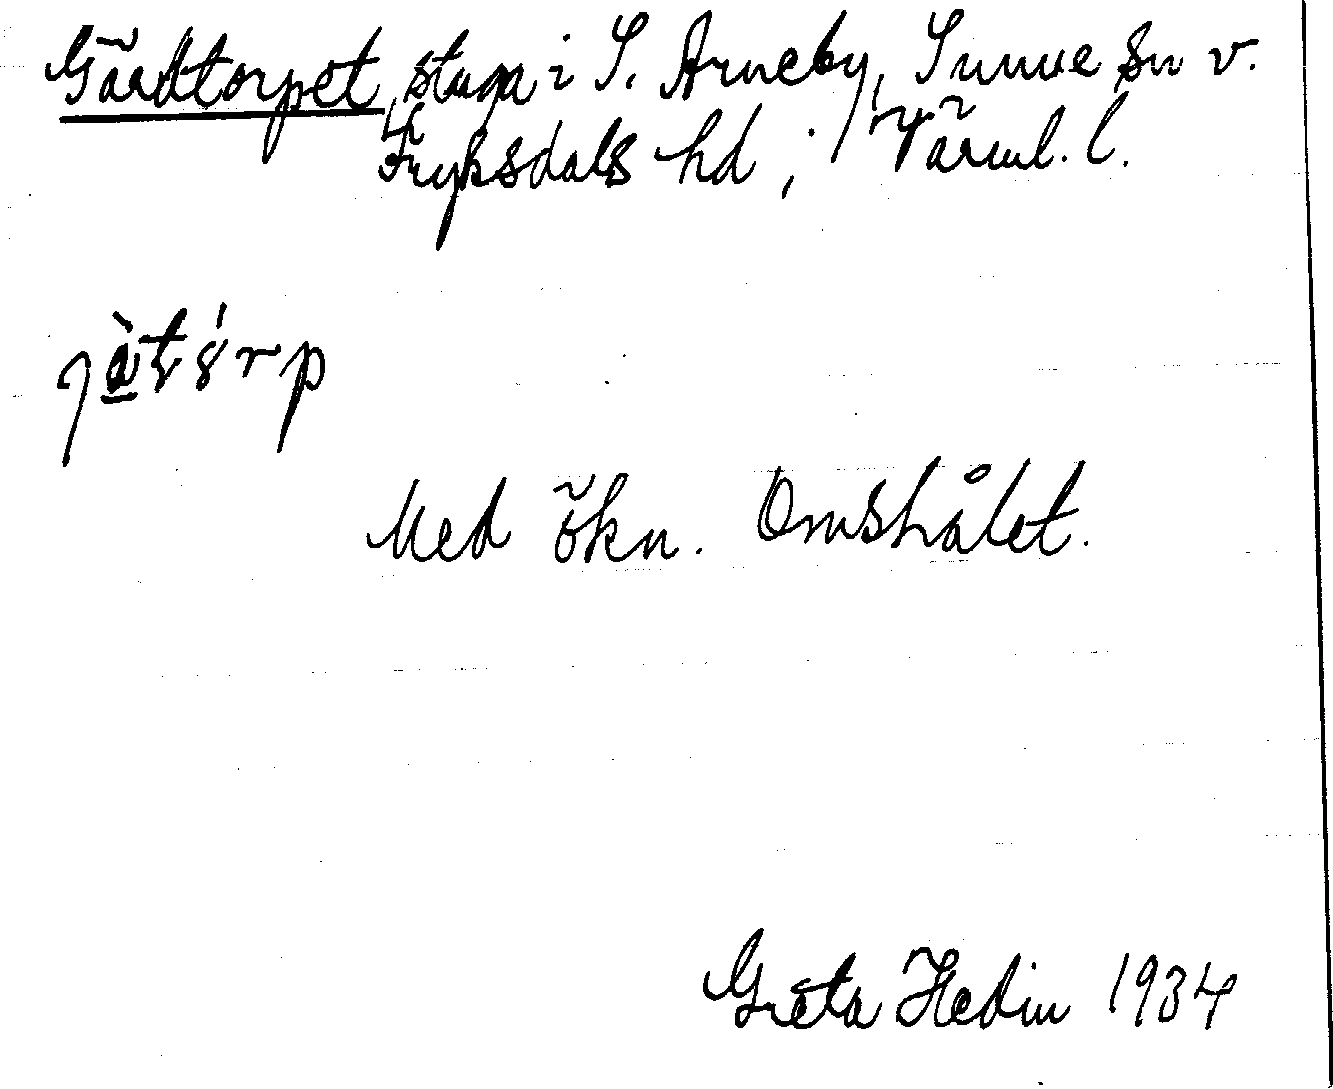 Gärdtorpet, stuga i S. Arneby, Sunne sn v.
Fryksdals hd; Värml. l.
Med ökn. Omshålet.
Greta Hedin 1934